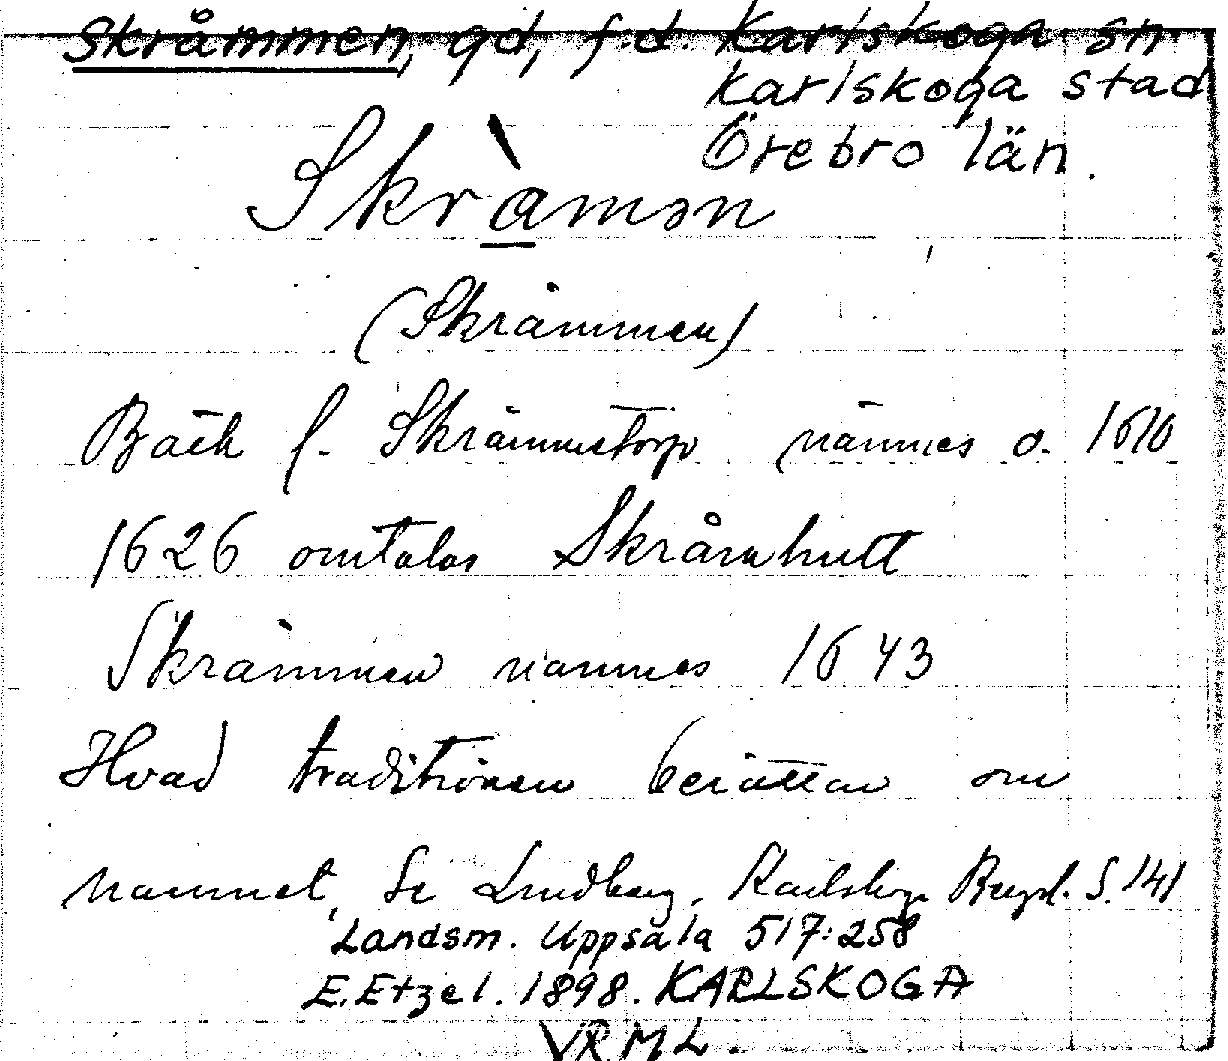 Skråmmen, gd, f.d. Karlskoga sn
Karlskoga stad
Örebro län.
Skràmən
(Skråmmen)
Bäck f. Skråmmstorp nämnes o. 1610
1626 omtalas Skråmhutt
Skråmmen namnes 1643
Hvad traditionen berättar om
namnet, Se Lindberg, Karlskoga Bergsl. S. 141
Landsm. Uppsala 517:258
E. Etzel. 1898. KARLSKOGA
VRML.